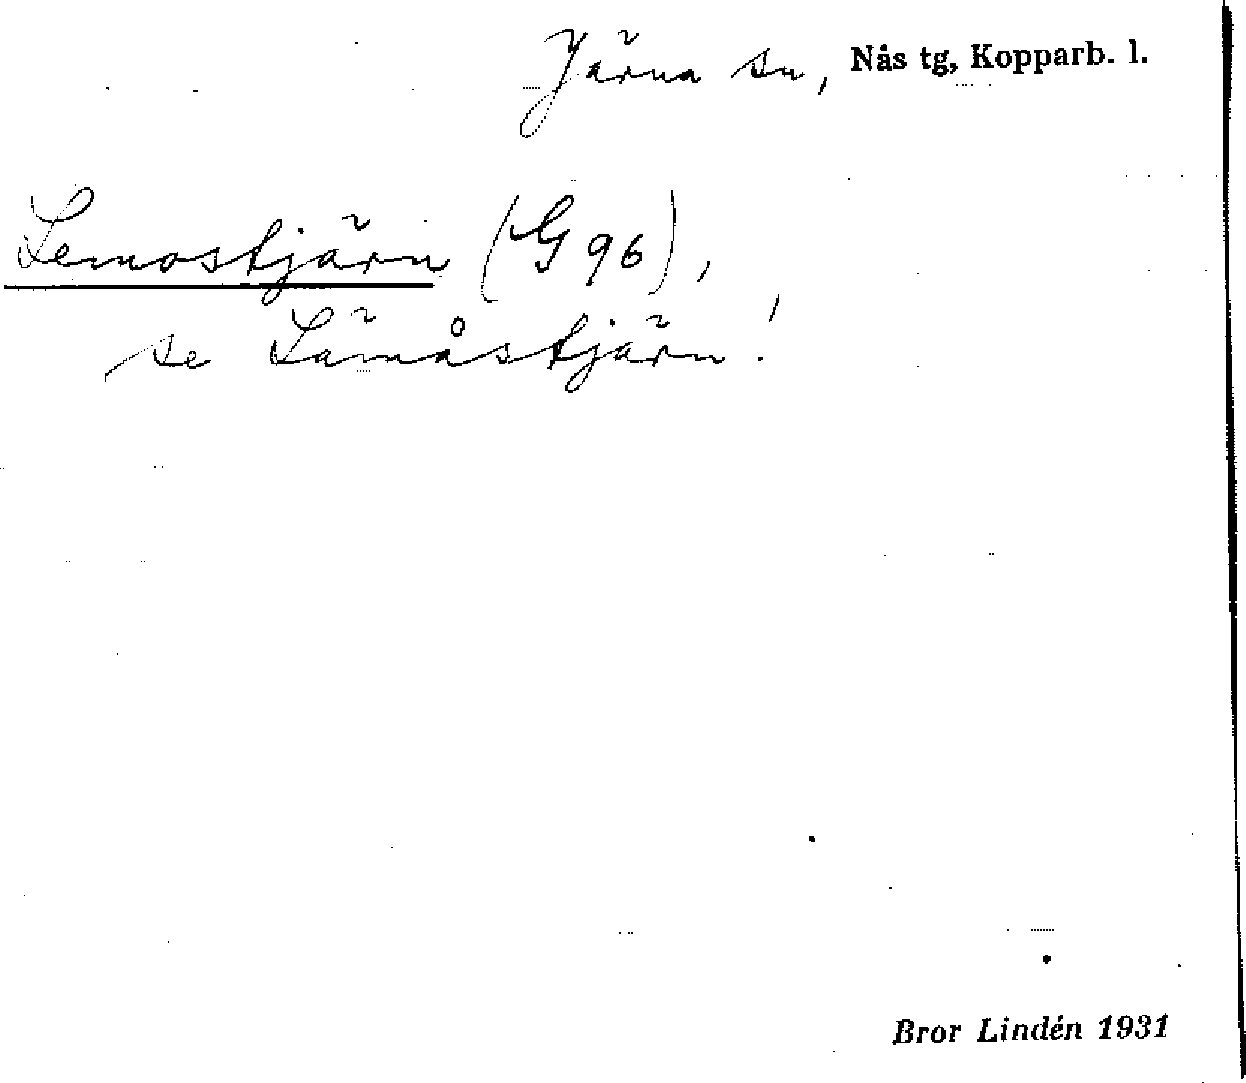 Järna sn, Nås tg, Kopparb. l.
Lemostjärn (G 96),
se Lämåstjärn!
Bror Lindén 1931